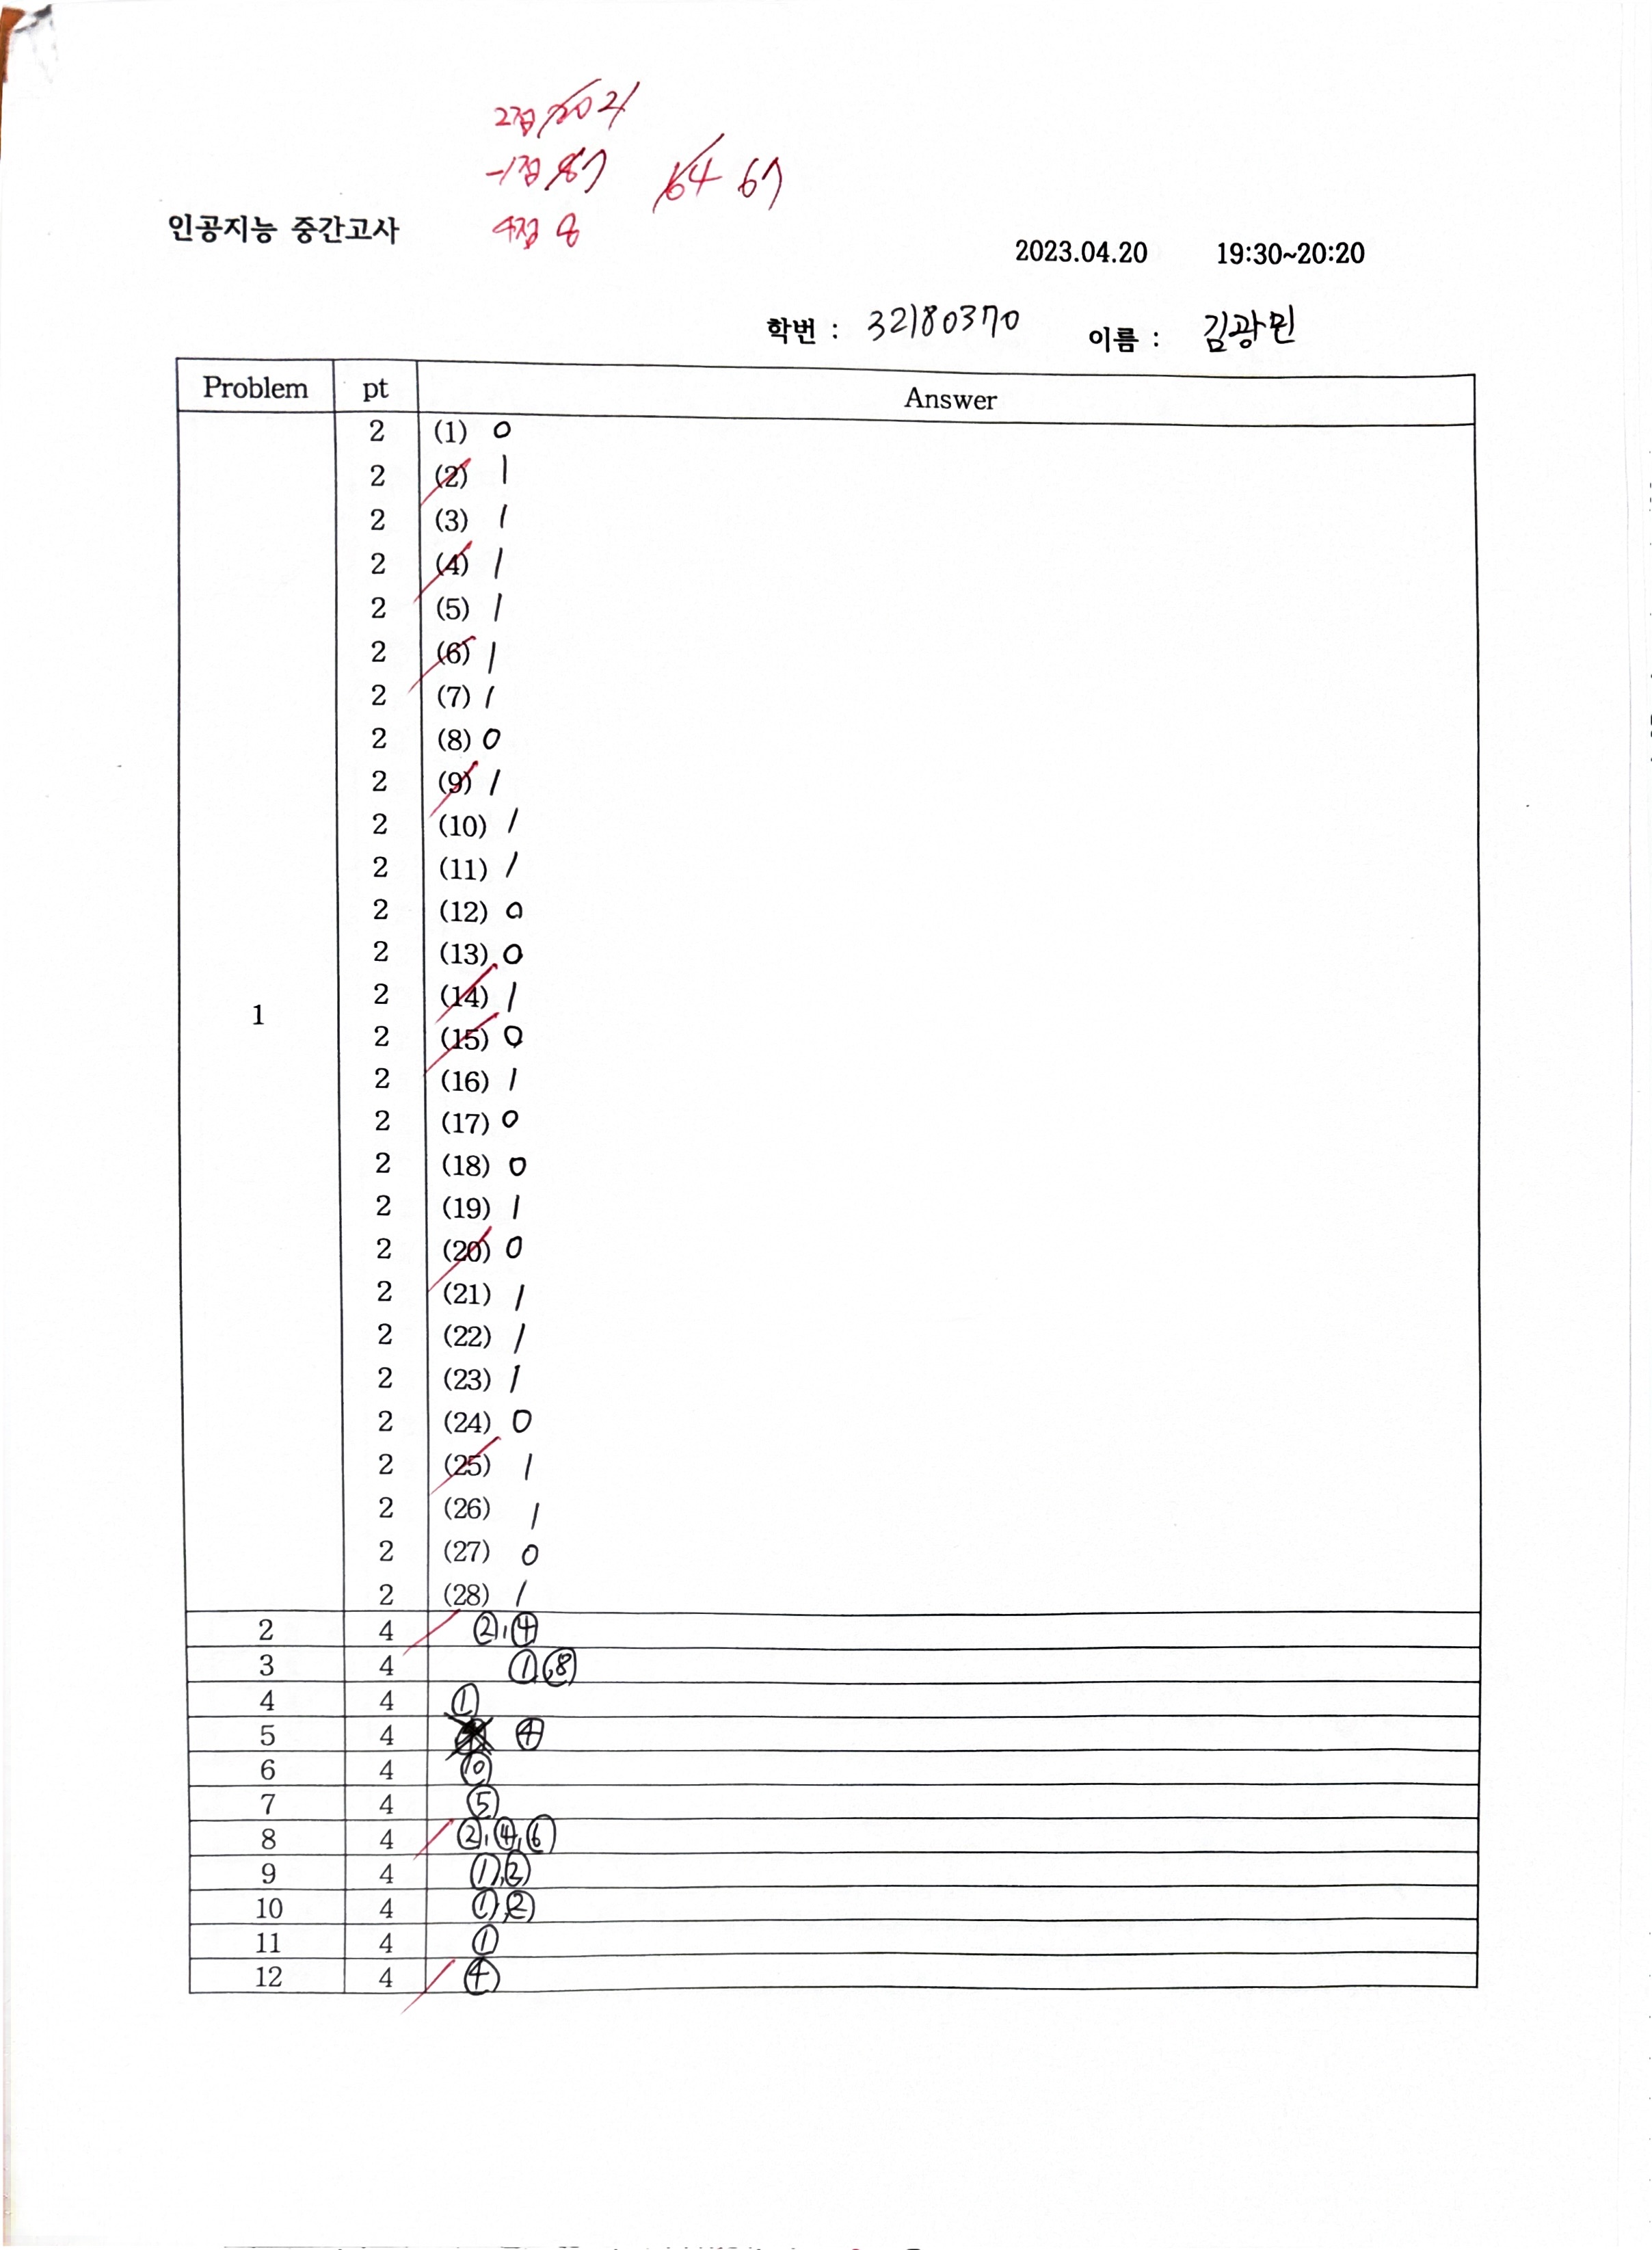 2점 20 21
-1점 8 7 64 67
인공지능 중간고사 4점 8
2023.04.20 19:30~20:20
학번 : 32180370 이름 : 김광민
Problem pt Answer
2 (1) 0
2 (2) 1
2 (3) 1
2 (4) 1
2 (5) 1
2 (6) 1
2 (7) 1
2 (8) 0
2 (9) 1
2 (10) 1
2 (11) 1
2 (12) 0
2 (13) 0
2 (14) 1
1 2 (15) 0
2 (16) 1
2 (17) 0
2 (18) 0
2 (19) 1
2 (20) 0
2 (21) 1
2 (22) 1
2 (23) 1
2 (24) 0
2 (25) 1
2 (26) 1
2 (27) 0
2 (28) 1
2 4 ②, ④
3 4 ①, ⑧
4 4 ①
5 4 ④
6 4 ⑩
7 4 ⑤
8 4 ②, ④, ⑥
9 4 ①, ②
10 4 ①, ②
11 4 ①
12 4 ④